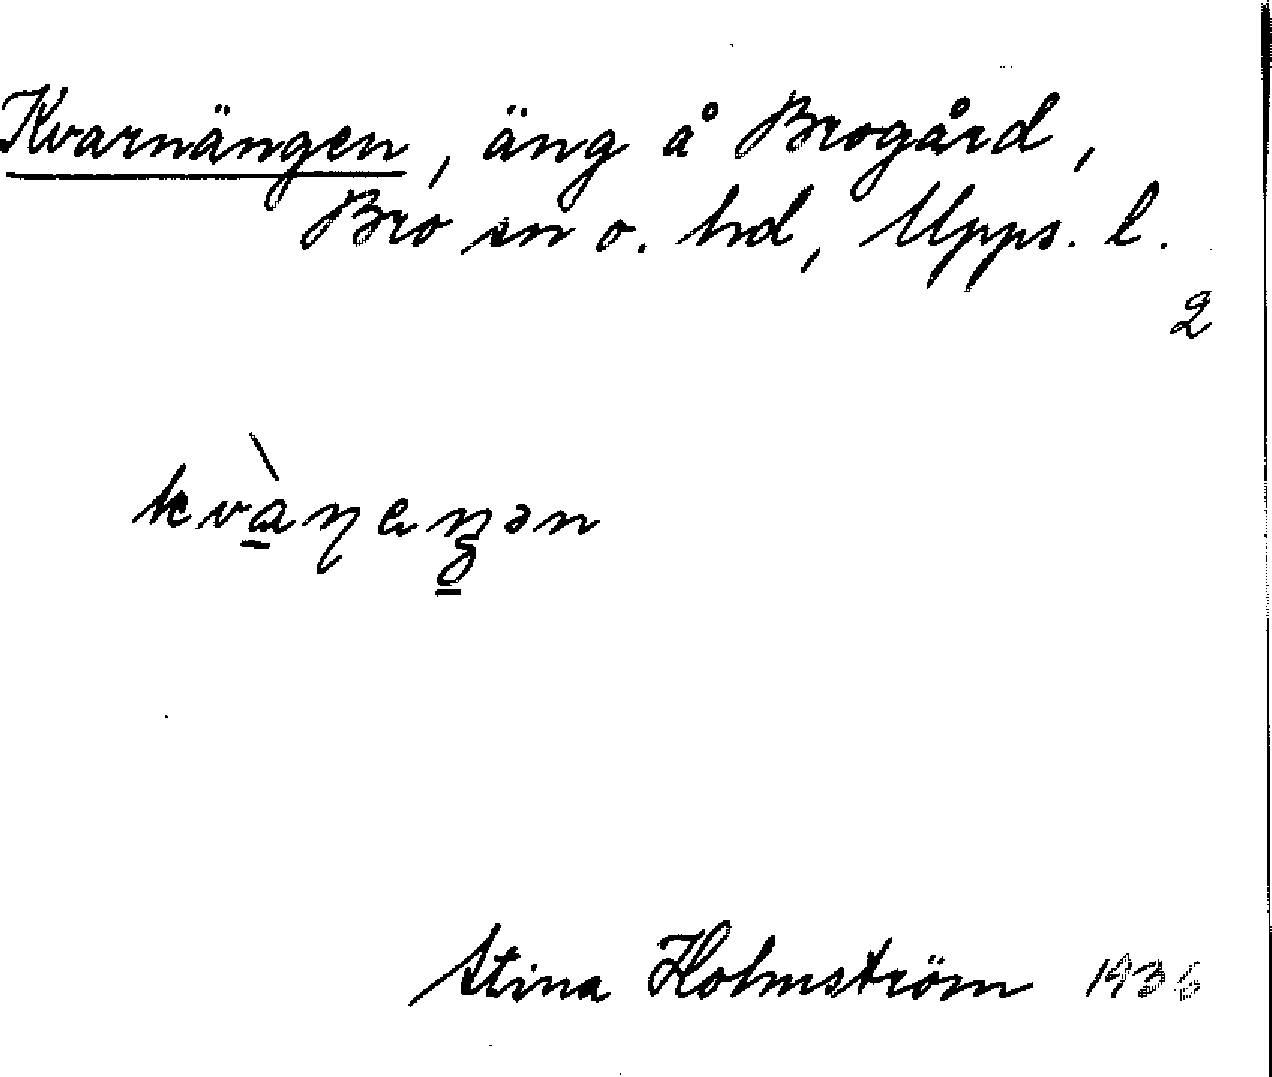 Kvarnängen, äng å Brogård,
Bro sn o. hd, Upps. l.
2
Stina Holmström 1936